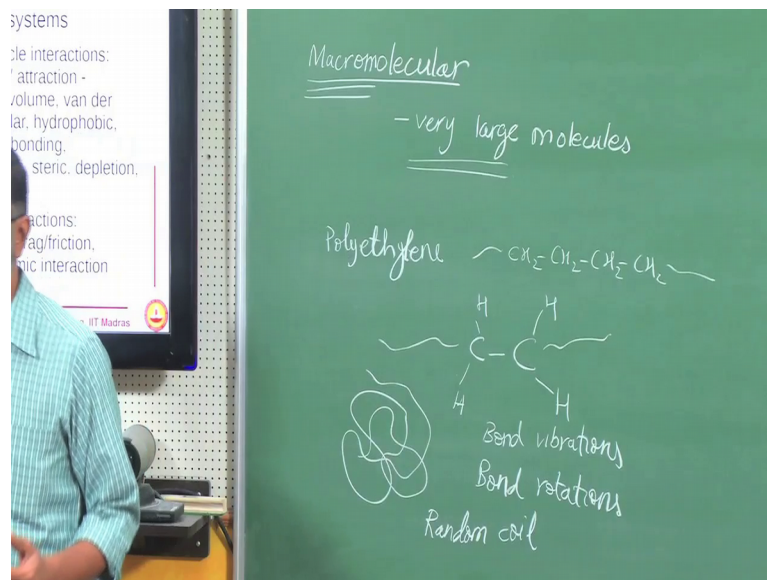 systems
cle interactions:
attraction -
volume, van der
lar, hydrophobic,
bonding,
steric, depletion,
actions:
rag/friction,
mic interaction
IIT Madras
Macromolecular
- very large molecules
Polyethylene ~ CH2-CH2-CH2-CH2
H H
C - C
H H
Bond vibrations
Bond rotations
Random coil